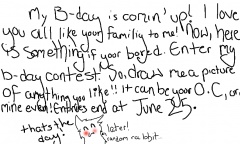 My B-day is comin' up! I love
you all like your familiy to me! Now, here
is something if your bored. Enter my
b-day contest. Jo, draw me a picture
of anything you like!! It can be your O.C, or
mine even! Entries end at June 25.
thats the day.
later!
random rabbit